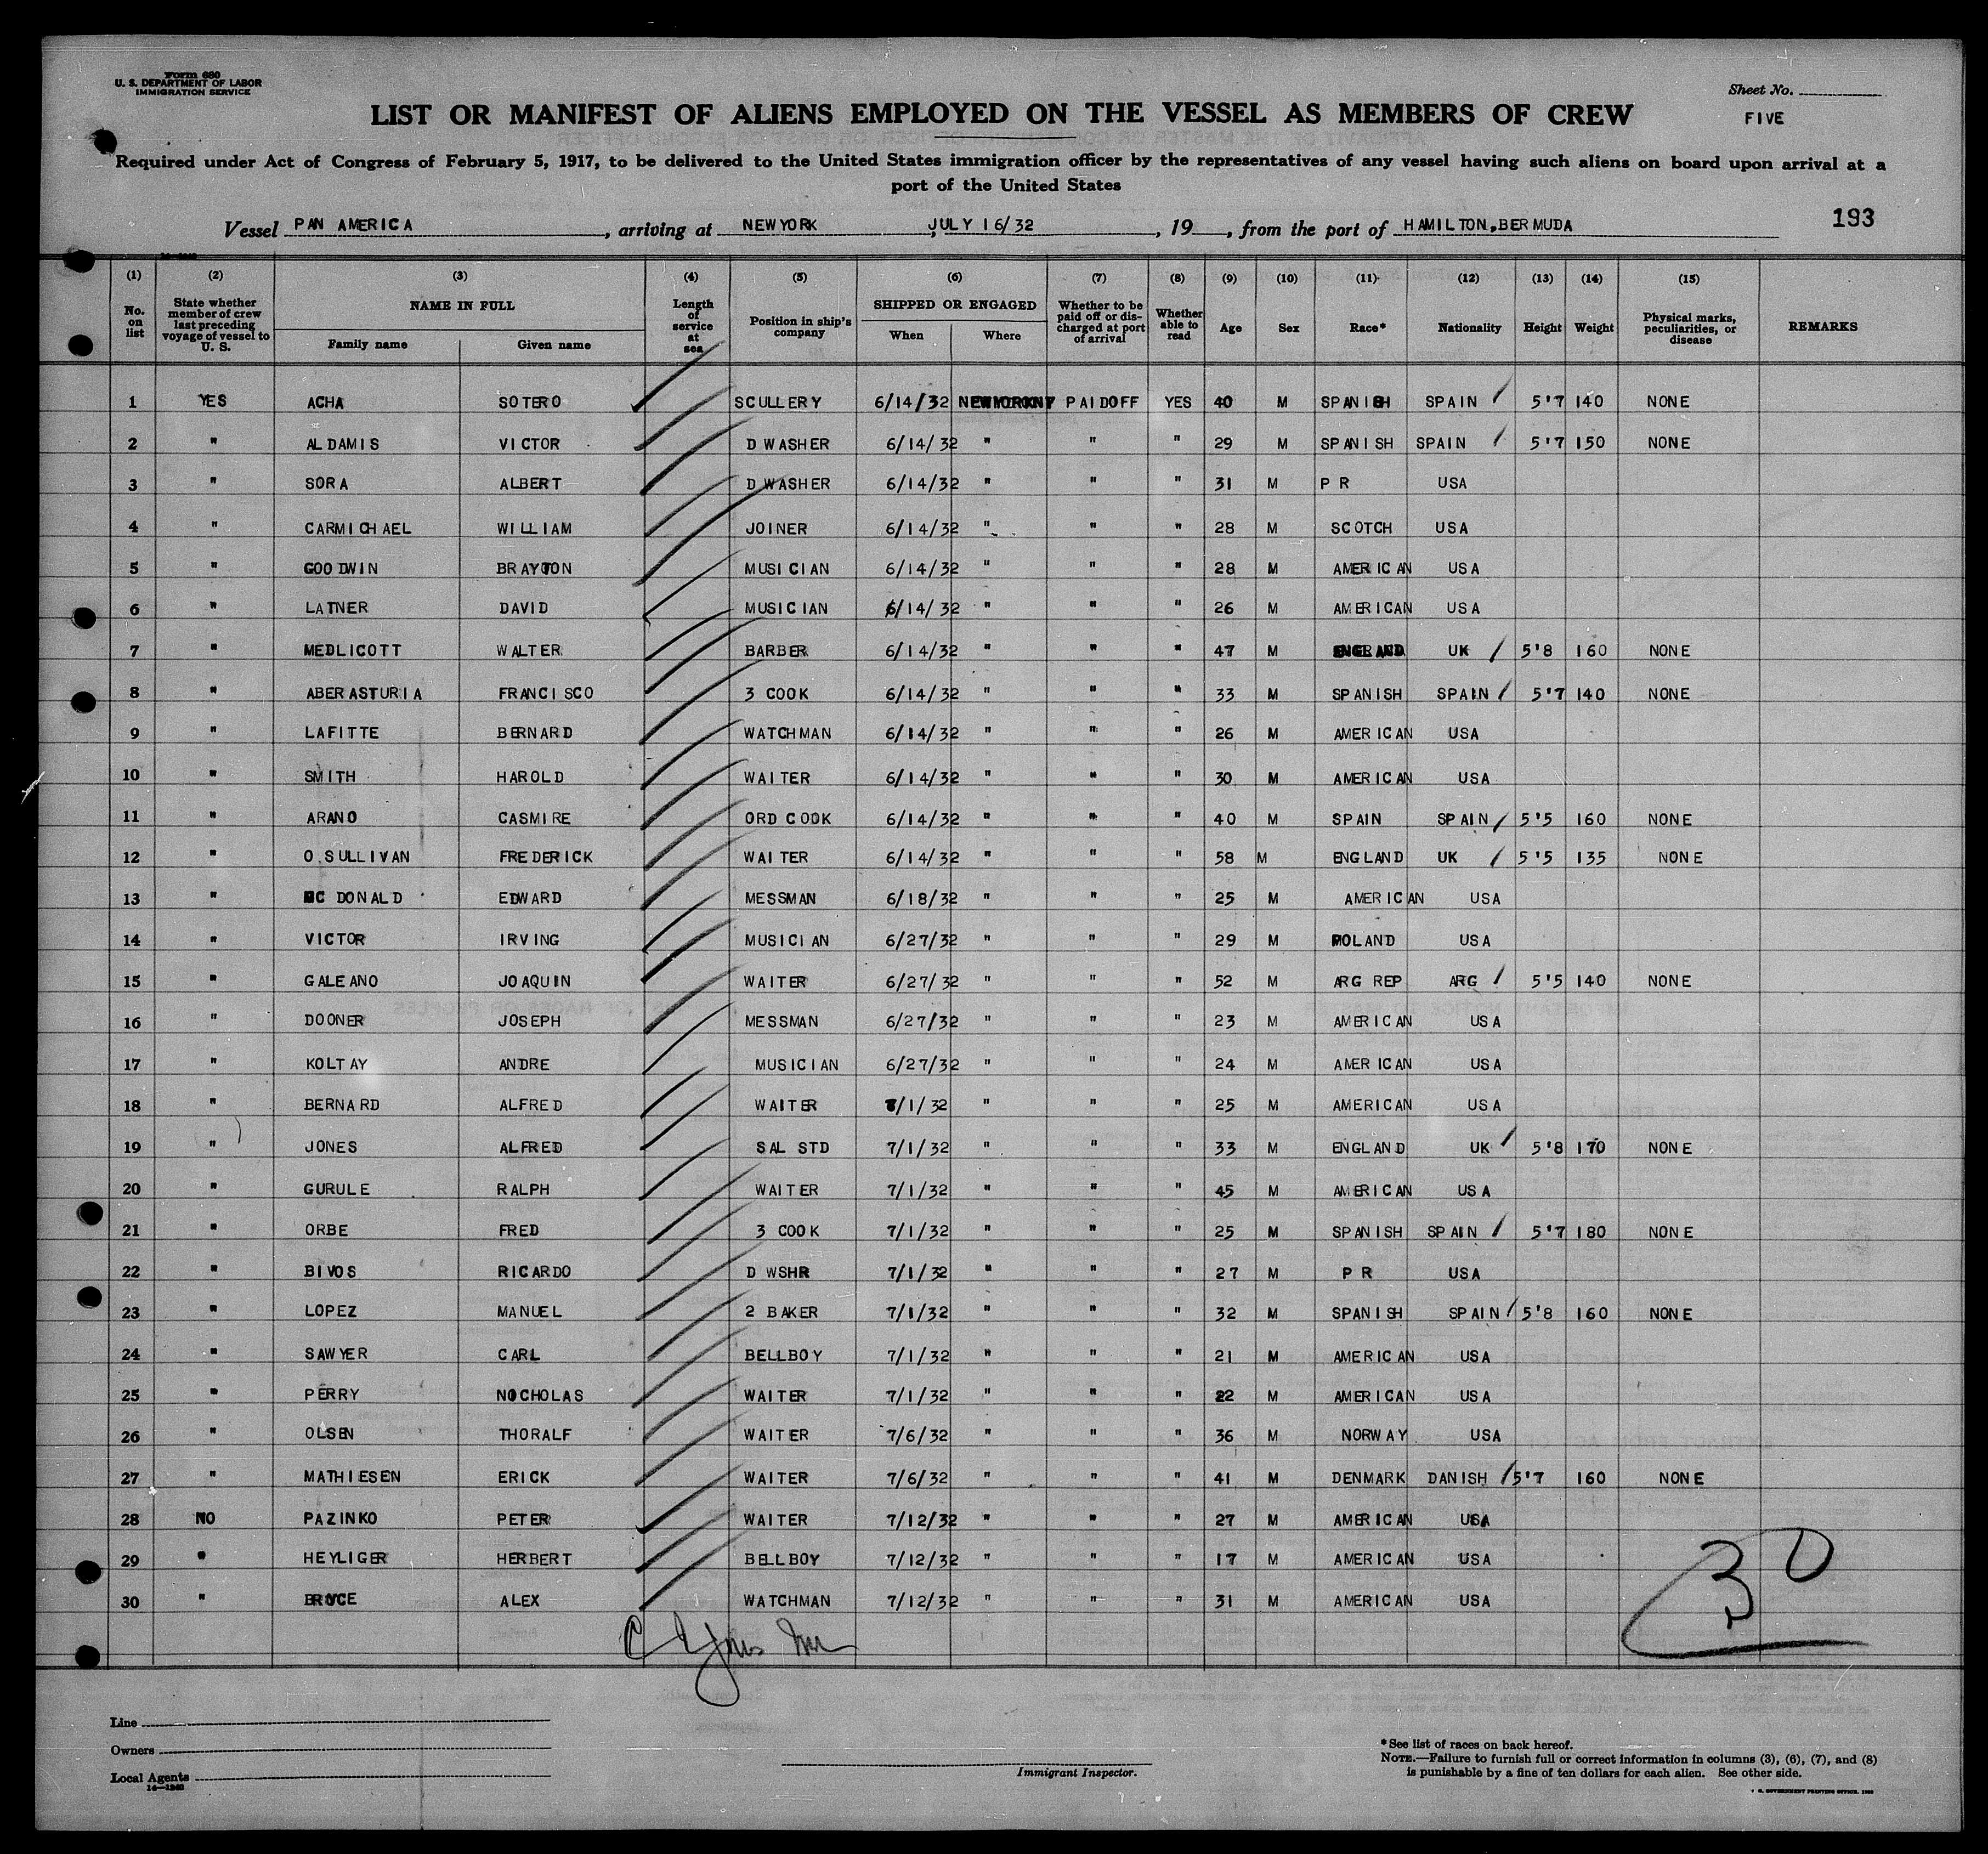 Form 680
U. S. DEPARTMENT OF LABOR
IMMIGRATION SERVICE
Sheet No.
FIVE
LIST OR MANIFEST OF ALIENS EMPLOYED ON THE VESSEL AS MEMBERS OF CREW
Required under Act of Congress of February 5, 1917, to be delivered to the United States immigration officer by the representatives of any vessel having such aliens on board upon arrival at a
port of the United States
Vessel PAN AMERICA, arriving at NEWYORK, JULY 16/32, 19, from the port of HAMILTON,BERMUDA 193
(1) (2) (3) (4) (5) (6) (7) (8) (9) (10) (11) (12) (13) (14) (15)
No. on list State whether member of crew last preceding voyage of vessel to U. S. NAME IN FULL Family name Given name Length of service at sea Position in ship's company SHIPPED OR ENGAGED When Where Whether to be paid off or discharged at port of arrival Whether able to read Age Sex Race* Nationality Height Weight Physical marks, peculiarities, or disease REMARKS
1 YES ACHA SOTERO SCULLERY 6/14/32 NEWYORKNY PAIDOFF YES 40 M SPANISH SPAIN 5'7 140 NONE
2 " ALDAMIS VICTOR D WASHER 6/14/32 " " " 29 M SPANISH SPAIN 5'7 150 NONE
3 " SORA ALBERT D WASHER 6/14/32 " " " 31 M P R USA
4 " CARMICHAEL WILLIAM JOINER 6/14/32 " " " 28 M SCOTCH USA
5 " GOODWIN BRAYTON MUSICIAN 6/14/32 " " " 28 M AMERICAN USA
6 " LATNER DAVID MUSICIAN 6/14/32 " " " 26 M AMERICAN USA
7 " MEDLICOTT WALTER BARBER 6/14/32 " " " 47 M ENGLAND UK 5'8 160 NONE
8 " ABERASTURIA FRANCISCO 3 COOK 6/14/32 " " " 33 M SPANISH SPAIN 5'7 140 NONE
9 " LAFITTE BERNARD WATCHMAN 6/14/32 " " " 26 M AMERICAN USA
10 " SMITH HAROLD WAITER 6/14/32 " " " 30 M AMERICAN USA
11 " ARANO CASMIRE ORD COOK 6/14/32 " " " 40 M SPAIN SPAIN 5'5 160 NONE
12 " O.SULLIVAN FREDERICK WAITER 6/14/32 " " " 58 M ENGLAND UK 5'5 135 NONE
13 " MC DONALD EDWARD MESSMAN 6/18/32 " " " 25 M AMERICAN USA
14 " VICTOR IRVING MUSICIAN 6/27/32 " " " 29 M POLAND USA
15 " GALEANO JOAQUIN WAITER 6/27/32 " " " 52 M ARG REP ARG 5'5 140 NONE
16 " DOONER JOSEPH MESSMAN 6/27/32 " " " 23 M AMERICAN USA
17 " KOLTAY ANDRE MUSICIAN 6/27/32 " " " 24 M AMERICAN USA
18 " BERNARD ALFRED WAITER 7/1/32 " " " 25 M AMERICAN USA
19 " JONES ALFRED SAL STD 7/1/32 " " " 33 M ENGLAND UK 5'8 170 NONE
20 " GURULE RALPH WAITER 7/1/32 " " " 45 M AMERICAN USA
21 " ORBE FRED 3 COOK 7/1/32 " " " 25 M SPANISH SPAIN 5'7 180 NONE
22 " BIVOS RICARDO D WSHR 7/1/32 " " " 27 M P R USA
23 " LOPEZ MANUEL 2 BAKER 7/1/32 " " " 32 M SPANISH SPAIN 5'8 160 NONE
24 " SAWYER CARL BELLBOY 7/1/32 " " " 21 M AMERICAN USA
25 " PERRY NOCHOLAS WAITER 7/1/32 " " " 22 M AMERICAN USA
26 " OLSEN THORALF WAITER 7/6/32 " " " 36 M NORWAY USA
27 " MATHIESEN ERICK WAITER 7/6/32 " " " 41 M DENMARK DANISH 5'7 160 NONE
28 NO PAZINKO PETER WAITER 7/12/32 " " " 27 M AMERICAN USA
29 " HEYLIGER HERBERT BELLBOY 7/12/32 " " " 17 M AMERICAN USA
30 " BRYCE ALEX WATCHMAN 7/12/32 " " " 31 M AMERICAN USA
30
Line
Owners
Local Agents
14—1240
Immigrant Inspector.
*See list of races on back hereof.
NOTE.—Failure to furnish full or correct information in columns (3), (6), (7), and (8)
is punishable by a fine of ten dollars for each alien. See other side.
U. S. GOVERNMENT PRINTING OFFICE